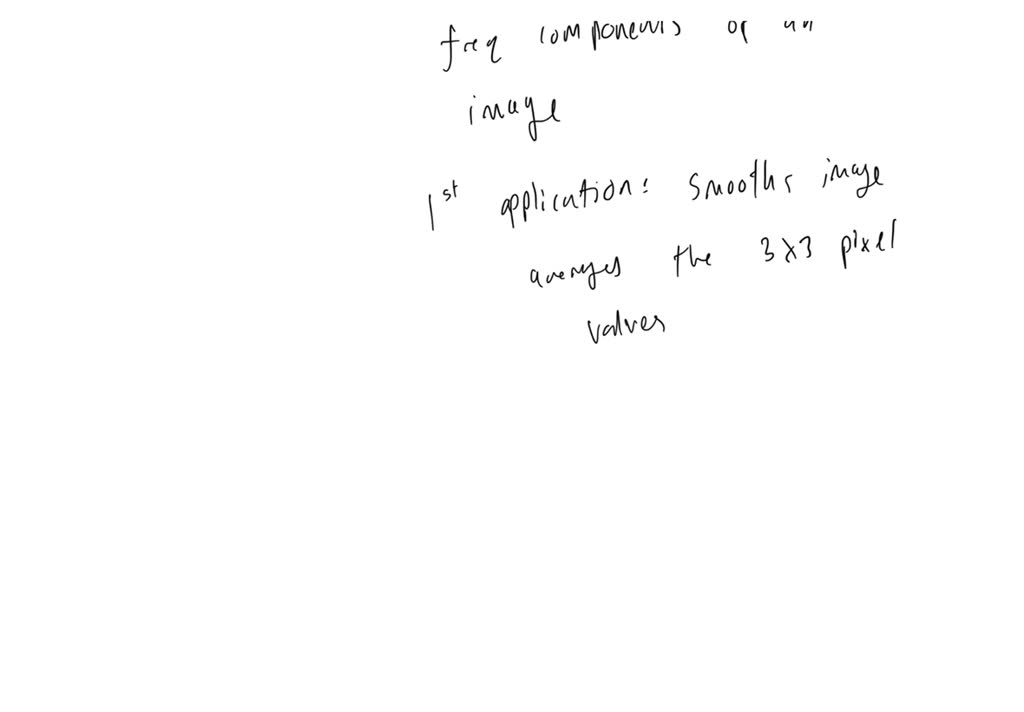 freq components of an
image
1st application: smooths image
averages the 3x3 pixel
values